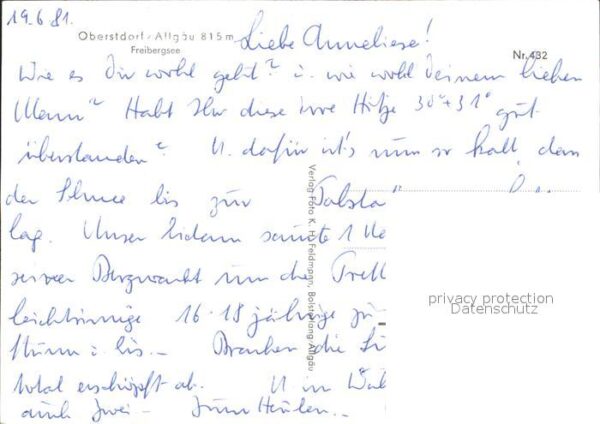 19.6.81.
Oberstdorf/Allgäu 815 m
Freibergsee
Nr. 432
Liebe Anneliese!
Wie es Dir wohl geht? u. wie wohl Deinem lieben
Mann? Habt Ihr diese irre Hitze 30°+31° gut
überstanden? U. dafür ist's nun so kalt, dass
der Schnee bis zur Talsta
lag. Unser sandte 1
Bergwacht um die
leichtsinnige 16-18 jährige
Sturm u. Eis.- Brauchen die
total erschöpft ab. U in
auch zwei - zum Heulen.-
Verlag Foto K. H. Feldmann, Bolsterlang/Allgäu
privacy protection
Datenschutz